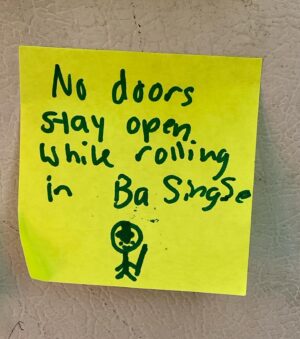 No doors
stay open
while rolling
in Ba SingSe